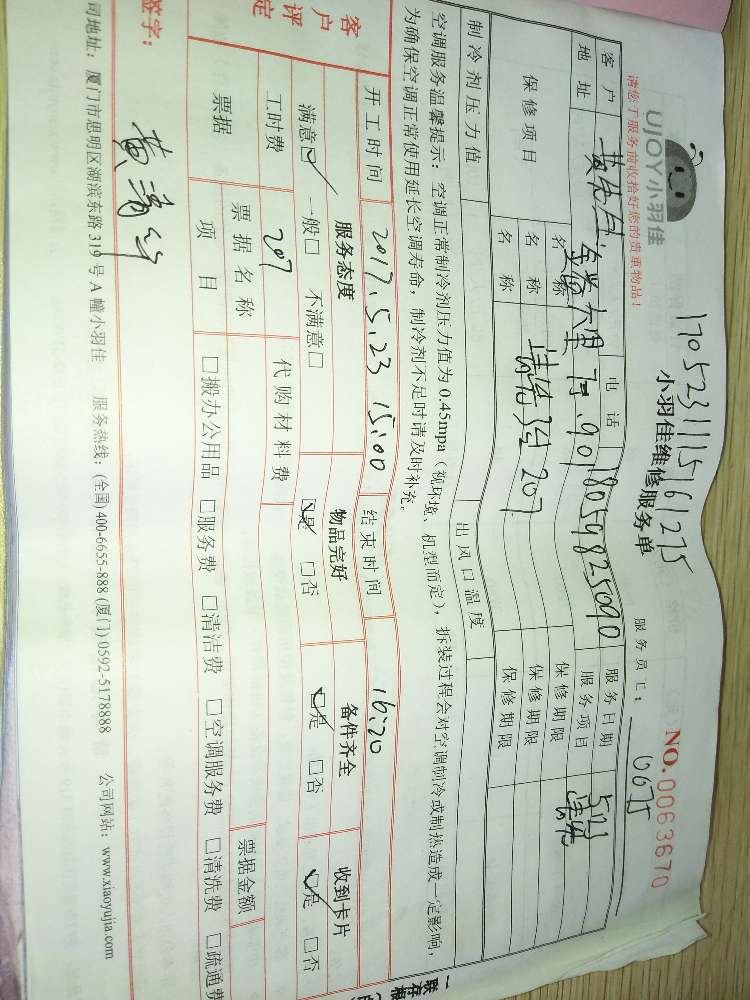 1705231115161275
UJOY小羽佳
小羽佳维修服务单
服务员工： 0675
NO.0063670
请您于服务前收拾好您的贵重物品！
客户 电话 18059825090 服务日期
地址 服务项目
保修项目 名称 保修期限
名称 保修期限
名称 保修期限
207
制冷剂压力值 出风口温度
空调服务温馨提示：空调正常制冷剂压力值为0.45mpa（视环境、机型而定），拆装过程会对空调制冷或制热造成一定影响，
为确保空调正常使用延长空调寿命，制冷剂不足时请及时补充。
开工时间 2017.5.23 15:00 结束时间 16:20
客户评定
服务态度 物品完好 备件齐全 收到卡片
满意□ 一般□ 不满意□ □是 □否 □是 □否 □是 □否
工时费 207 代购材料费
票据 票据名称 票据金额
项目 □搬办公用品 □服务费 □清洁费 □空调服务费 □清洗费 □疏通费
签字：
司地址：厦门市思明区湖滨东路319号A幢小羽佳 服务热线：(全国)400-6655-888 (厦门)0592-5178888 公司网站：www.xiaoyujia.com